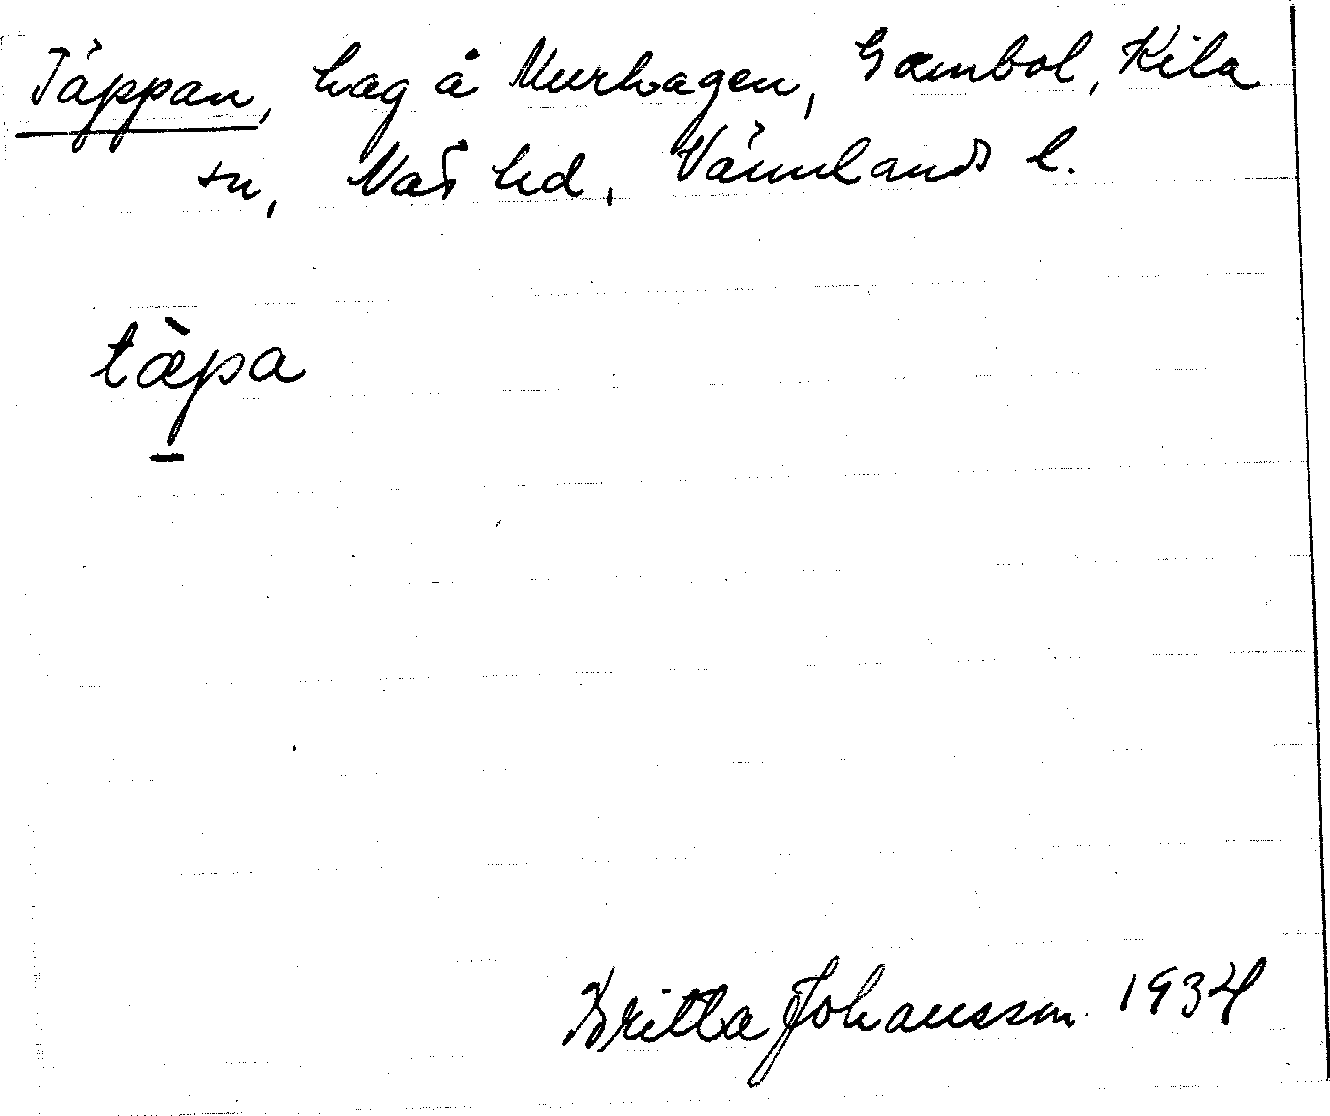 Täppan, hag å Murhagen, Gambol, Kila
sn, Näs hd, Värmlands l.
tàpa
Britta Johansson 1934